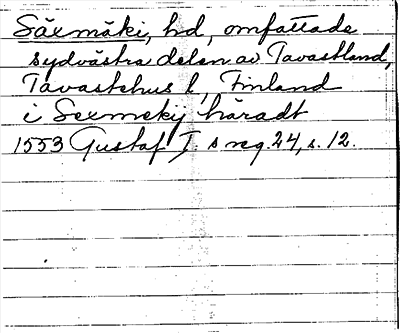 Säxmäki, hd, omfattade
sydvästra delen av Tavastland,
Tavastehus l, Finland
i Sexmekij häradt
1553 Gustaf I. s reg. 24, s. 12.